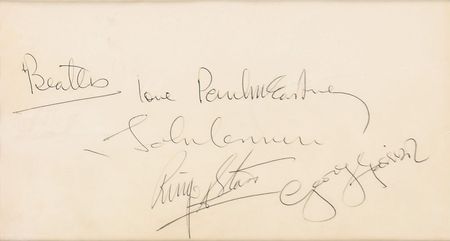 Beatles love Paul McCartney
John Lennon
Ringo Starr George Harrison